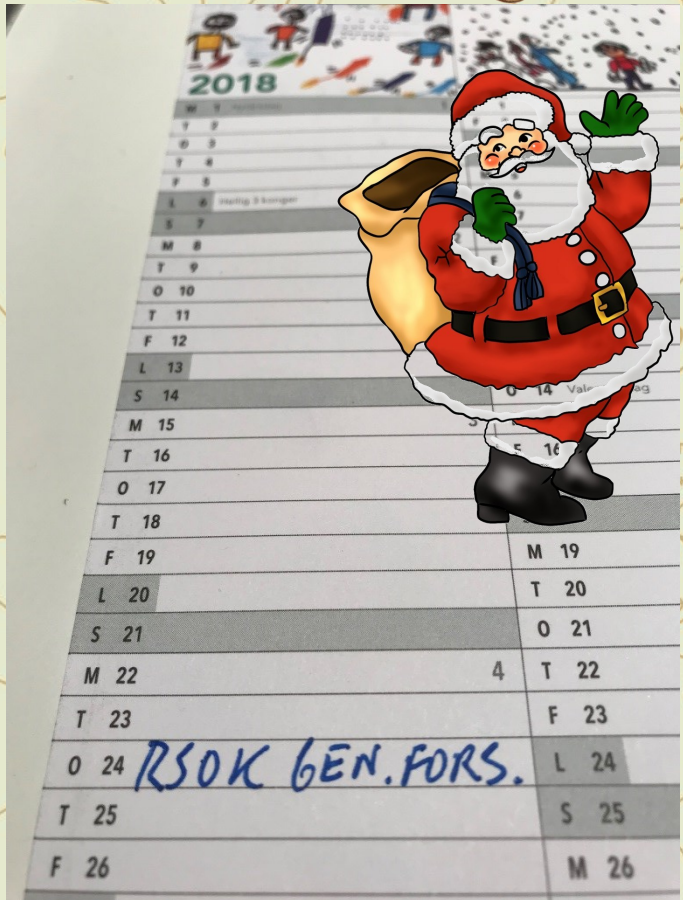 2018
M 1
T 2
O 3
T 4
F 5
L 6 Hellig 3 konger
S 7
M 8
T 9
O 10
T 11
F 12
L 13
S 14
M 15 3
T 16
O 17
T 18
F 19
L 20
S 21
M 22 4
T 23
O 24 RSOK GEN.FORS.
T 25
F 26
6
7
O 14
F 16
M 19
T 20
O 21
T 22
F 23
L 24
S 25
M 26